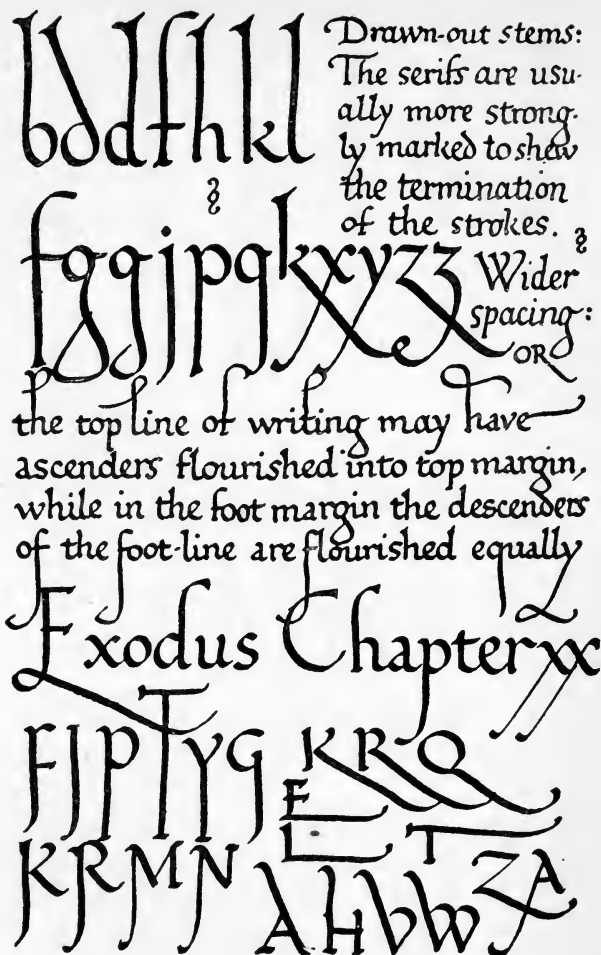 bddfhkl
Drawn-out stems:
The serifs are usu-
ally more strong-
ly marked to shew
the termination
of the strokes.
fggjpqkxyzz
Wider
spacing:
OR
the top line of writing may have
ascenders flourished into top margin,
while in the foot margin the descenders
of the foot-line are flourished equally
Exodus Chapter xx
FJPTYG
KRQ
E
L T
KRMN
AHVWZA